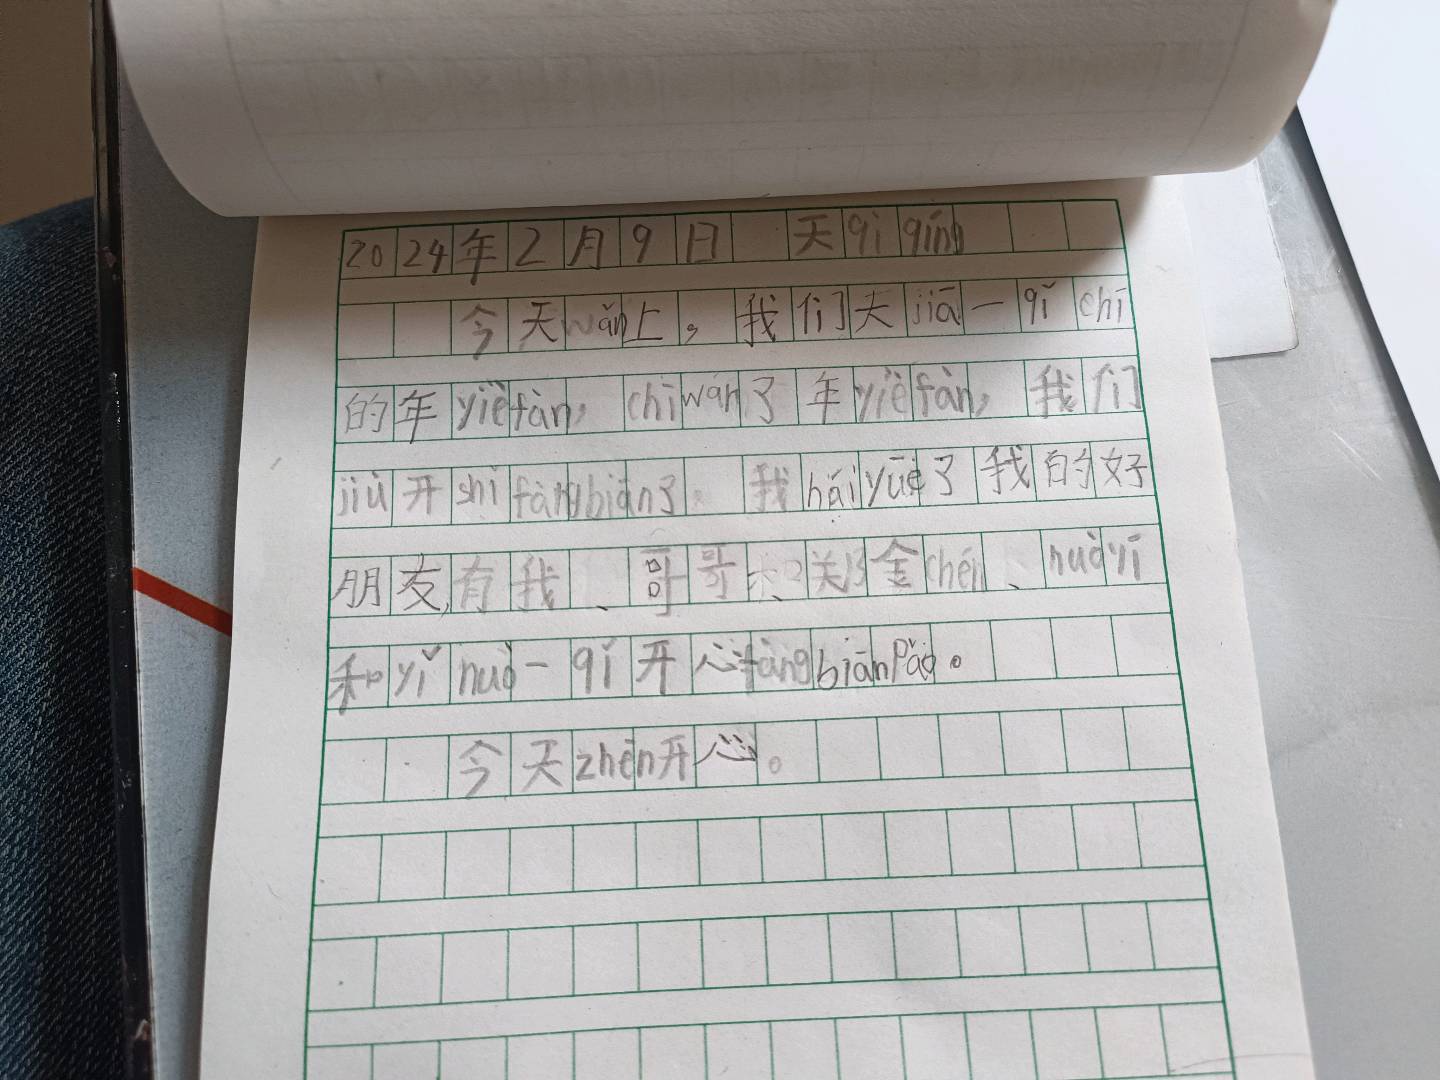 2024年2月9日 天qì qíng
今天wǎn上，我们大jiā一qǐ chī
的年yiè fàn，chī wán了年yiè fàn，我们
jiù开shǐ fàng biān了。我hái yuē了我的好
朋友,有我、哥哥、和关乃金chén、nuò yī
和yǐ nuò一qǐ开心fàng biān Pào。
今天zhēn开心。